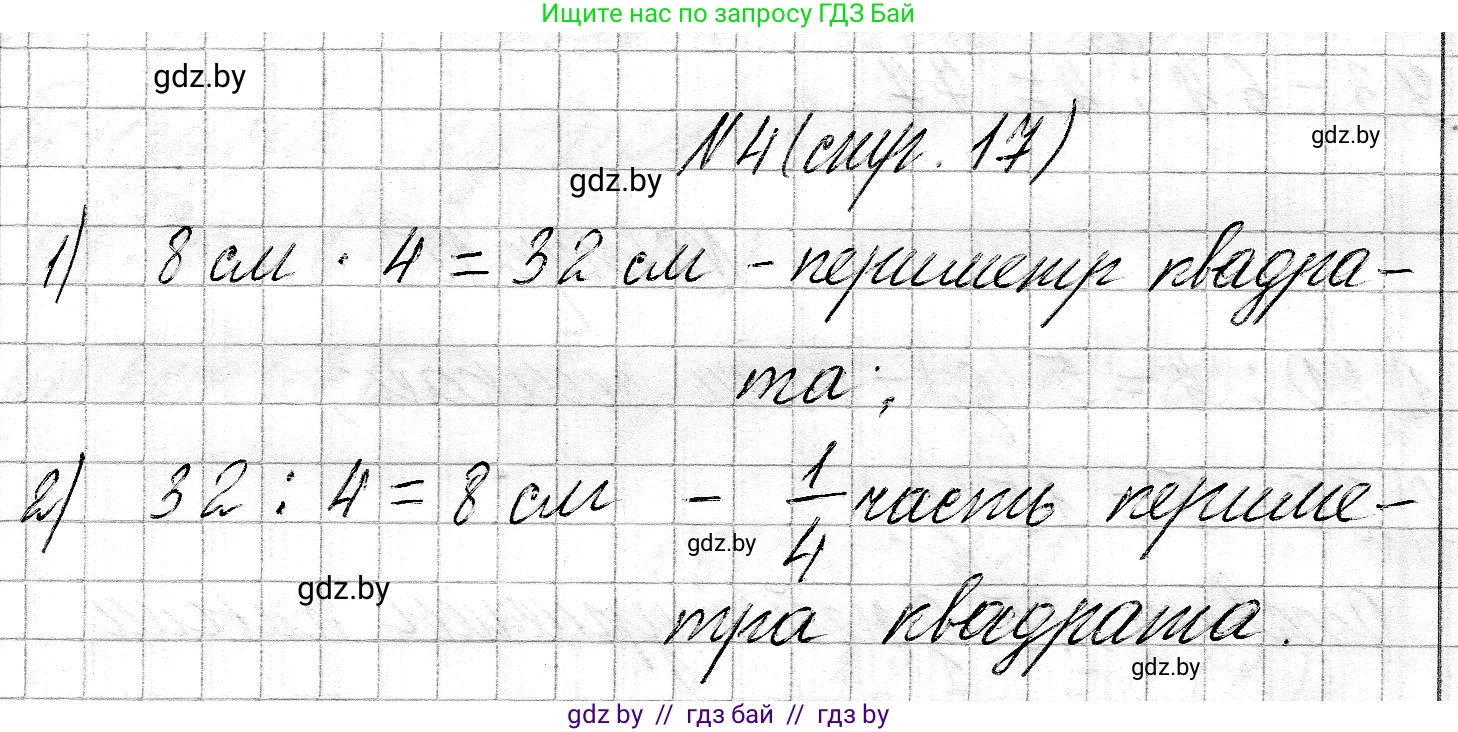 Ищите нас по запросу ГДЗ Бай
gdz.by
N4 (стр. 17)
gdz.by
gdz.by
1) 8 см · 4 = 32 см - периметр квадра-
та;
2) 32 : 4 = 8 см - 1/4 часть периме-
gdz.by
gdz.by
тра квадрата.
gdz.by
gdz by // гдз бай // гдз by